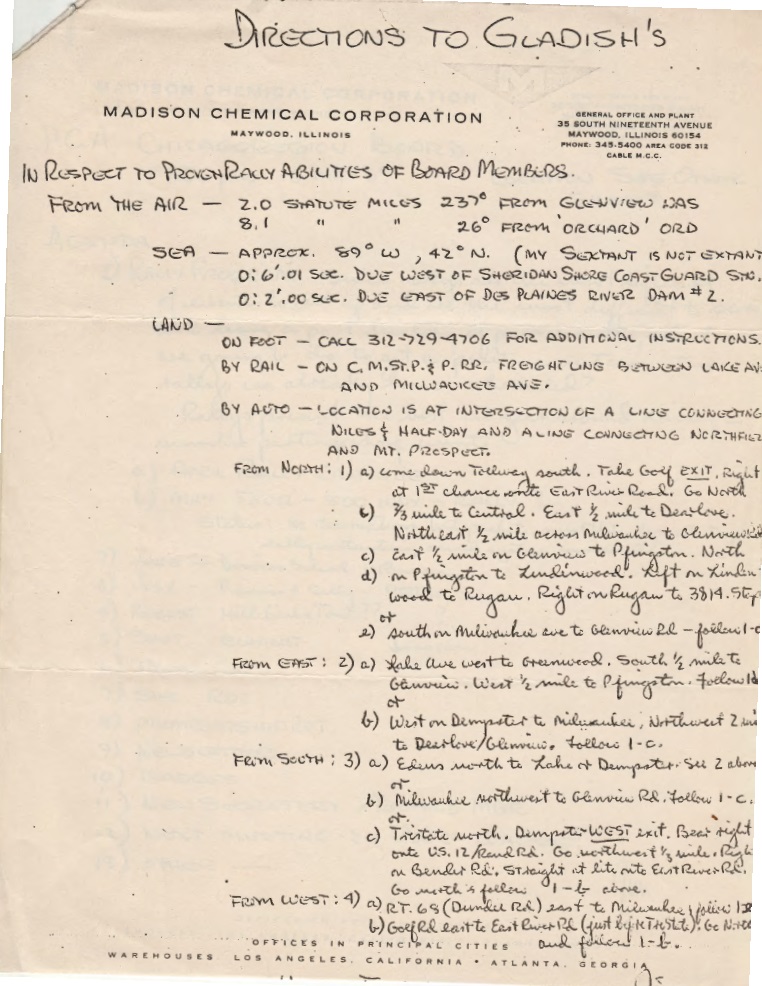 DIRECTIONS TO GLADISH'S
MADISON CHEMICAL CORPORATION
MAYWOOD, ILLINOIS
GENERAL OFFICE AND PLANT
35 SOUTH NINETEENTH AVENUE
MAYWOOD, ILLINOIS 60154
PHONE: 345-5400 AREA CODE 312
CABLE M.C.C.
IN RESPECT TO PROVEN RALLY ABILITIES OF BOARD MEMBERS.
FROM THE AIR — 2.0 STATUTE MILES 237° FROM GLENVIEW NAS
8.1 " " 26° FROM 'ORCHARD' ORD
SEA — APPROX. 89° W, 42° N. (MY SEXTANT IS NOT EXTANT
0:6'.01 SEC. DUE WEST OF SHERIDAN SHORE COAST GUARD STN.
0:2'.00 SEC. DUE EAST OF DES PLAINES RIVER DAM #2.
LAND —
ON FOOT — CALL 312-729-4706 FOR ADDITIONAL INSTRUCTIONS.
BY RAIL — ON C.M.ST.P. & P. RR. FREIGHT LINE BETWEEN LAKE AV
AND MILWAUKEE AVE.
BY AUTO — LOCATION IS AT INTERSECTION OF A LINE CONNECTING
NILES & HALF-DAY AND A LINE CONNECTING NORTHFIEL
AND MT. PROSPECT.
FROM NORTH: 1) a) come down Tollway south. Take Golf EXIT. Right
at 1ST chance onto East River Road. Go North
b) 2/3 mile to Central. East 1/2 mile to Dearlove.
Northeast 1/2 mile across Milwaukee to Glenview
c) East 1/2 mile on Glenview to Pfingston. North
d) on Pfingston to Lindenwood. Left on Linden
wood to Rugan. Right on Rugan to 3814. Stop
or
e) south on Milwaukee ave to Glenview Rd — follow 1-c
FROM EAST: 2) a) Lake Ave west to Greenwood. South 1/2 mile to
Glenview. West 1/2 mile to Pfingston. Follow 1d
or
b) West on Dempster to Milwaukee, Northwest 2 mi
to Dearlove/Glenview. Follow 1-c.
FROM SOUTH: 3) a) Edens north to Lake or Dempster. See 2 above
or
b) Milwaukee northwest to Glenview Rd. Follow 1-c.
or
c) Tristate north. Dempster WEST exit. Bear right
onto U.S. 12/Rand Rd. Go northwest 1/3 mile. Righ
on Bender Rd. Straight at lite onto East River Rd.
Go north & follow 1-b above.
FROM WEST: 4) a) RT. 68 (Dundee Rd) east to Milwaukee, follow
b) Golf Rd east to East River Rd (just by Tristate). Go North
and follow 1-b.
OFFICES IN PRINCIPAL CITIES
WAREHOUSES LOS ANGELES, CALIFORNIA • ATLANTA, GEORGIA